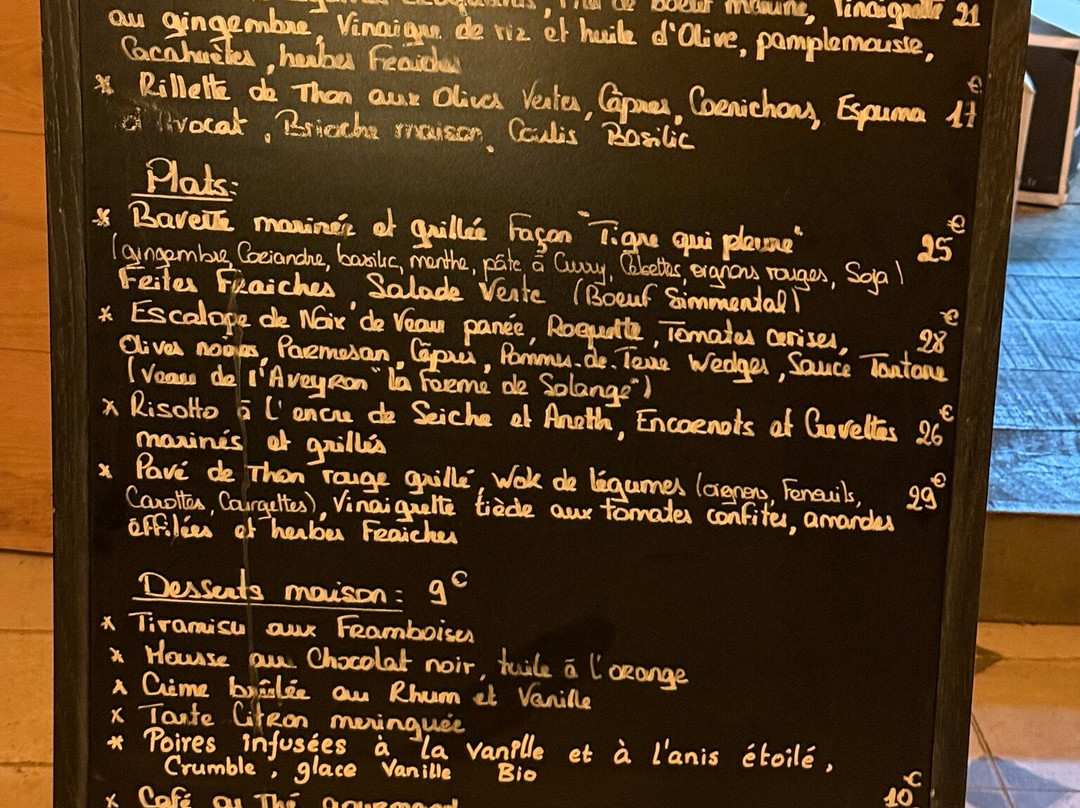 de Boeuf marine, Vinaigrette 21
au gingembre, Vinaigre de riz et huile d'Olive, pamplemousse,
Cacahuètes, herbes Fraiches
* Rillette de Thon aux Olives Vertes, Câpres, Cornichons, Espuma 17€
d'Avocat, Brioche maison, Coulis Basilic
Plats:
* Bavette marinée et grillée Façon "Tigre qui pleure" 25€
(gingembre, Coriandre, basilic, menthe, pâte à Curry, Cebettes, oignons rouges, Soja)
Frites Fraiches, Salade Verte (Boeuf Simmental)
* Escalope de Noix de Veau panée, Roquette, Tomates cerises, 28€
Olives noires, Parmesan, Câpres, Pommes-de-Terre Wedges, Sauce Tartare
(Veau de l'Aveyron "la Ferme de Solange")
* Risotto à l'encre de Seiche et Aneth, Encornets et Crevettes 26€
marinés et grillés
* Pavé de Thon rouge grillé, Wok de légumes (oignons, Fenouils, 29€
Carottes, Courgettes), Vinaigrette tiède aux tomates confites, amandes
éffilées et herbes Fraiches
Desserts maison: 9€
* Tiramisu aux Framboises
* Mousse au Chocolat noir, tuile à l'orange
* Crème brûlée au Rhum et Vanille
* Tarte Citron meringuée
* Poires infusées à la vanille et à l'anis étoilé,
Crumble, glace Vanille Bio
* Café ou Thé gourmand 10€